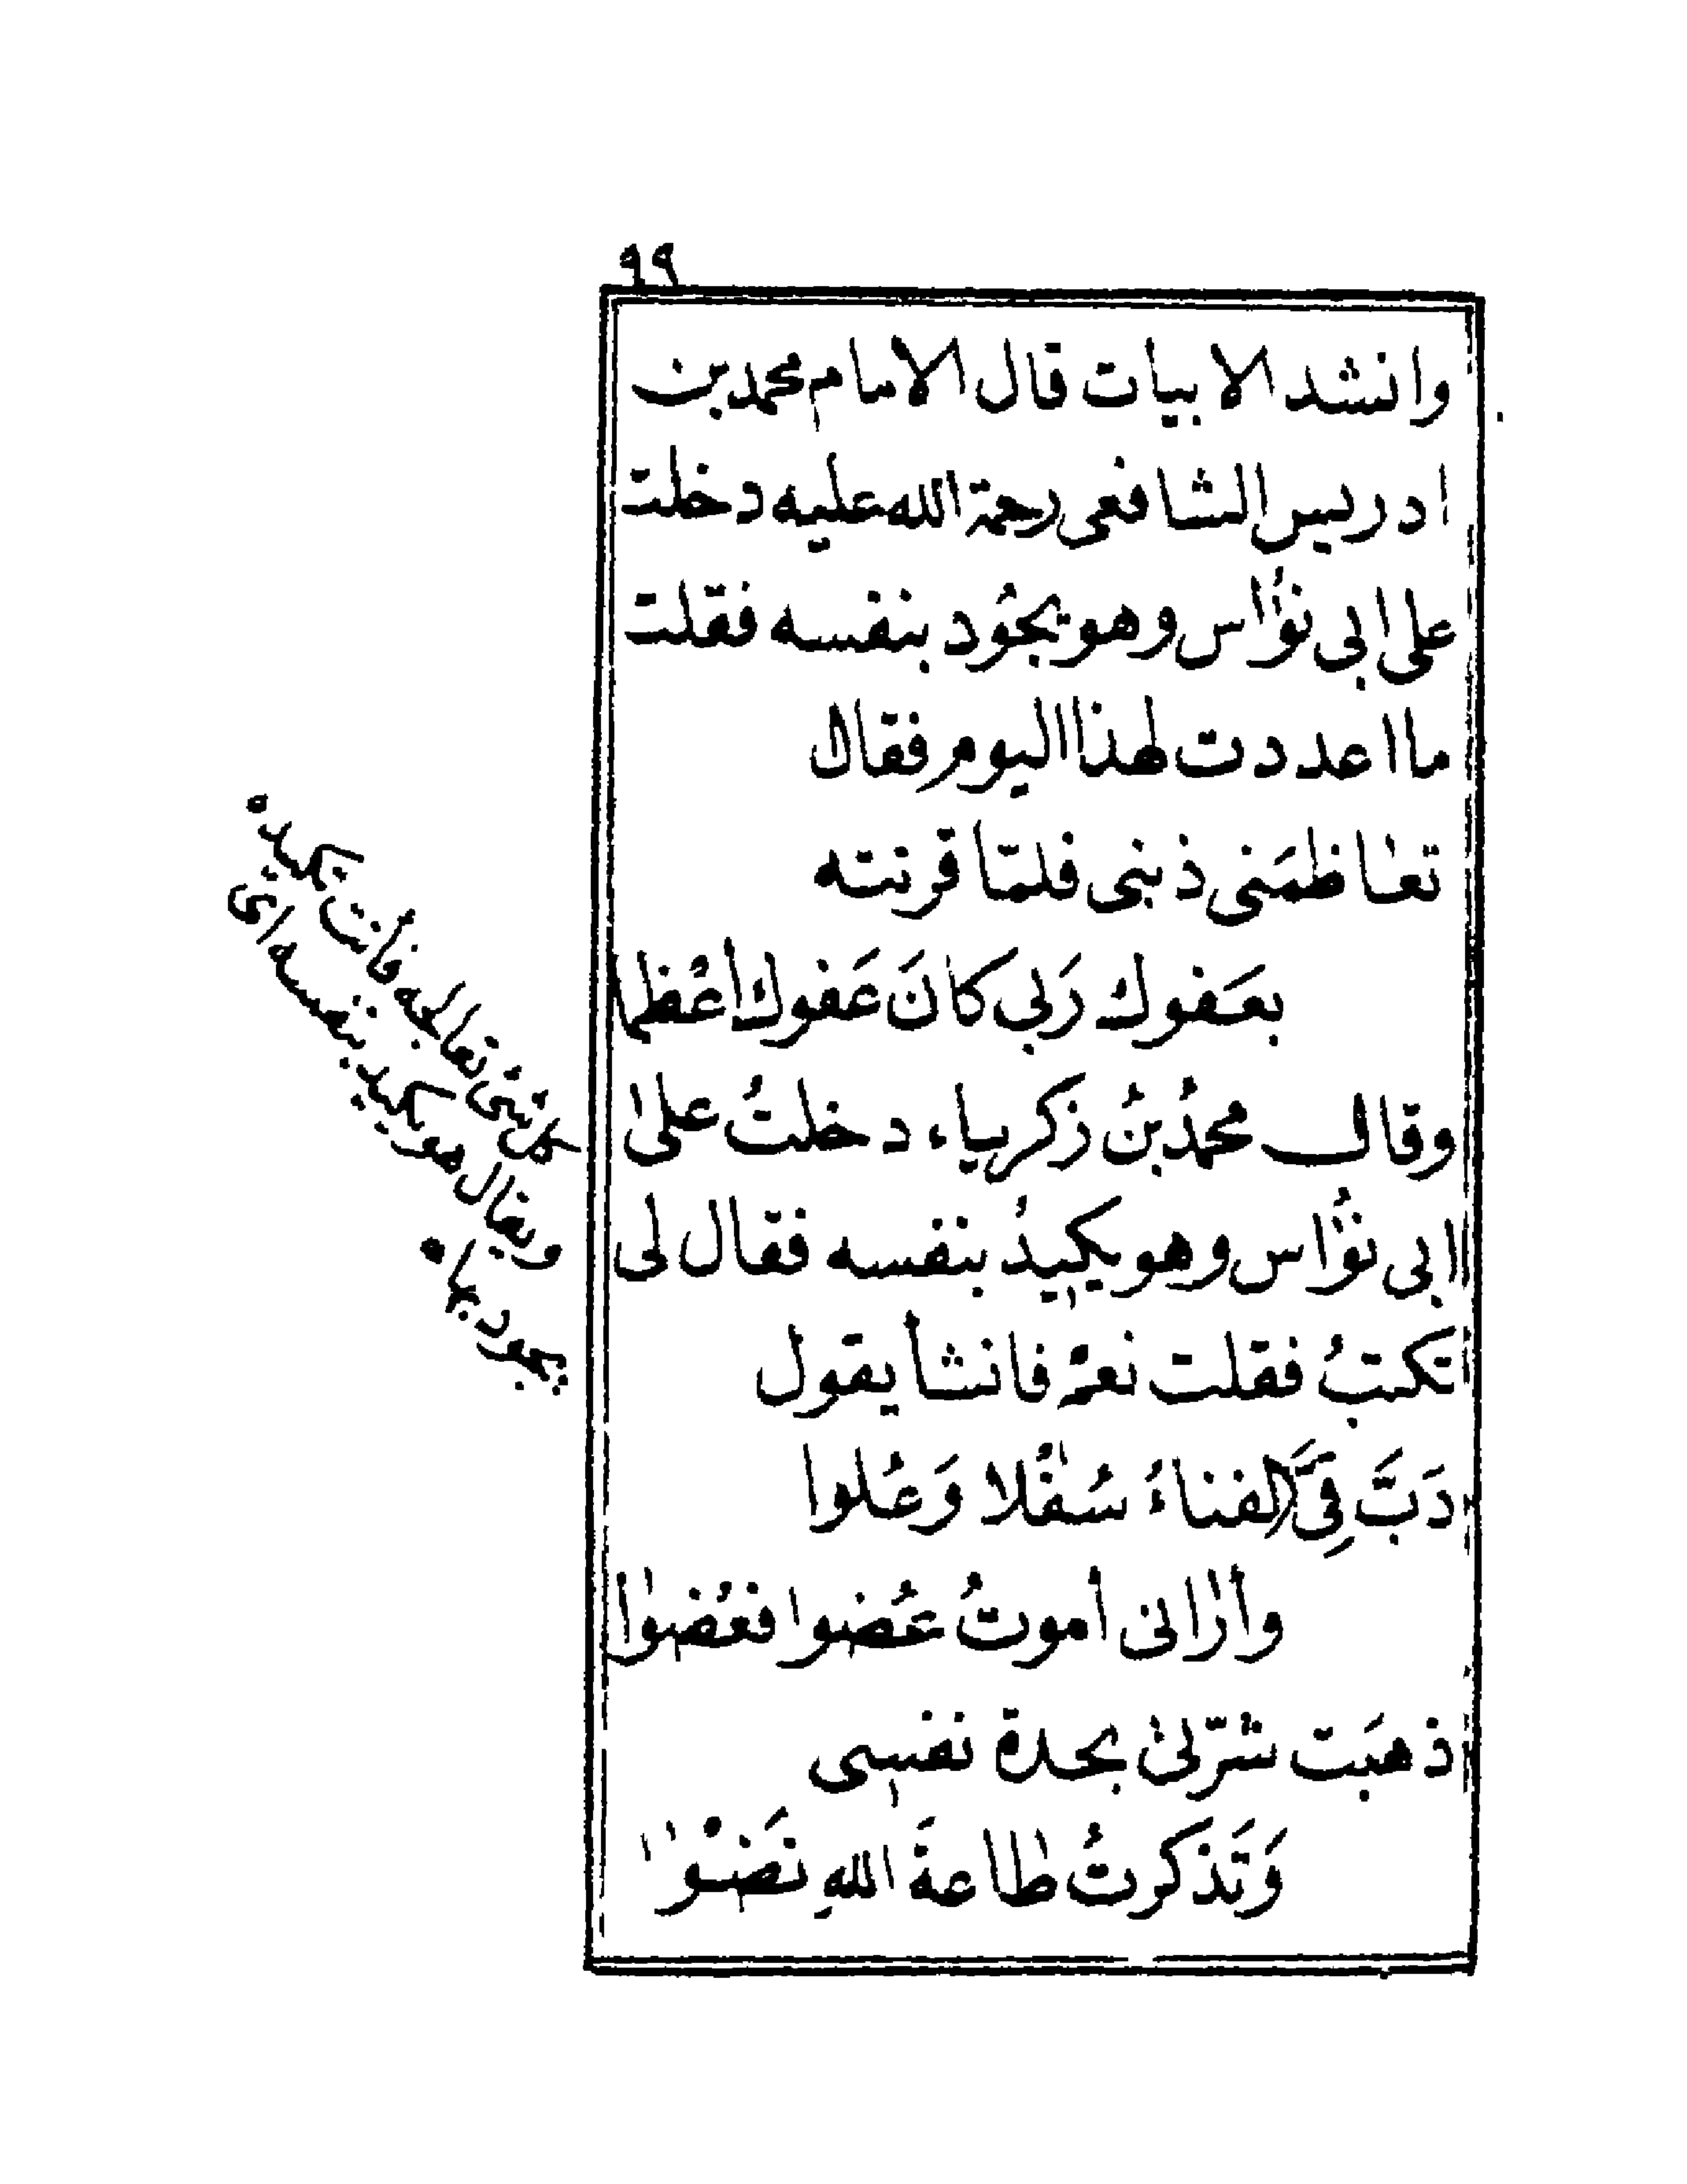 ٩٩
وانشد الابيات قال الامام محمد بن
ادريس الشافعى رحمة الله عليه دخلت
على ابى نؤاس وهو يجُود بنفسه فقلت
ما اعددت لهذا اليوم فقال
تعاظمَنى ذنبى فلمّا قرنته
بعَفوك رَبى كانَ عَفوك اعْظما
وقال محمدُ بنُ زكرياء دخلتُ على
ابى نؤاس وهو يكيدُ بنفسه فقال لى
تكتبُ فقلت نعم فانشأ يقول
دَبَّ فِىَّ الفناءُ سُفْلا وَعُلوا
وأرانى أموتُ عُضوا فعُضوا
ذهبَت شرّتى بحدة نفسى
وَتَذكرتُ طاعةَ اللهِ نَضْوا
كل شئ تعالجه فأنت تكيده
ويقال هو يكيد بنفسه اى
يجود بها